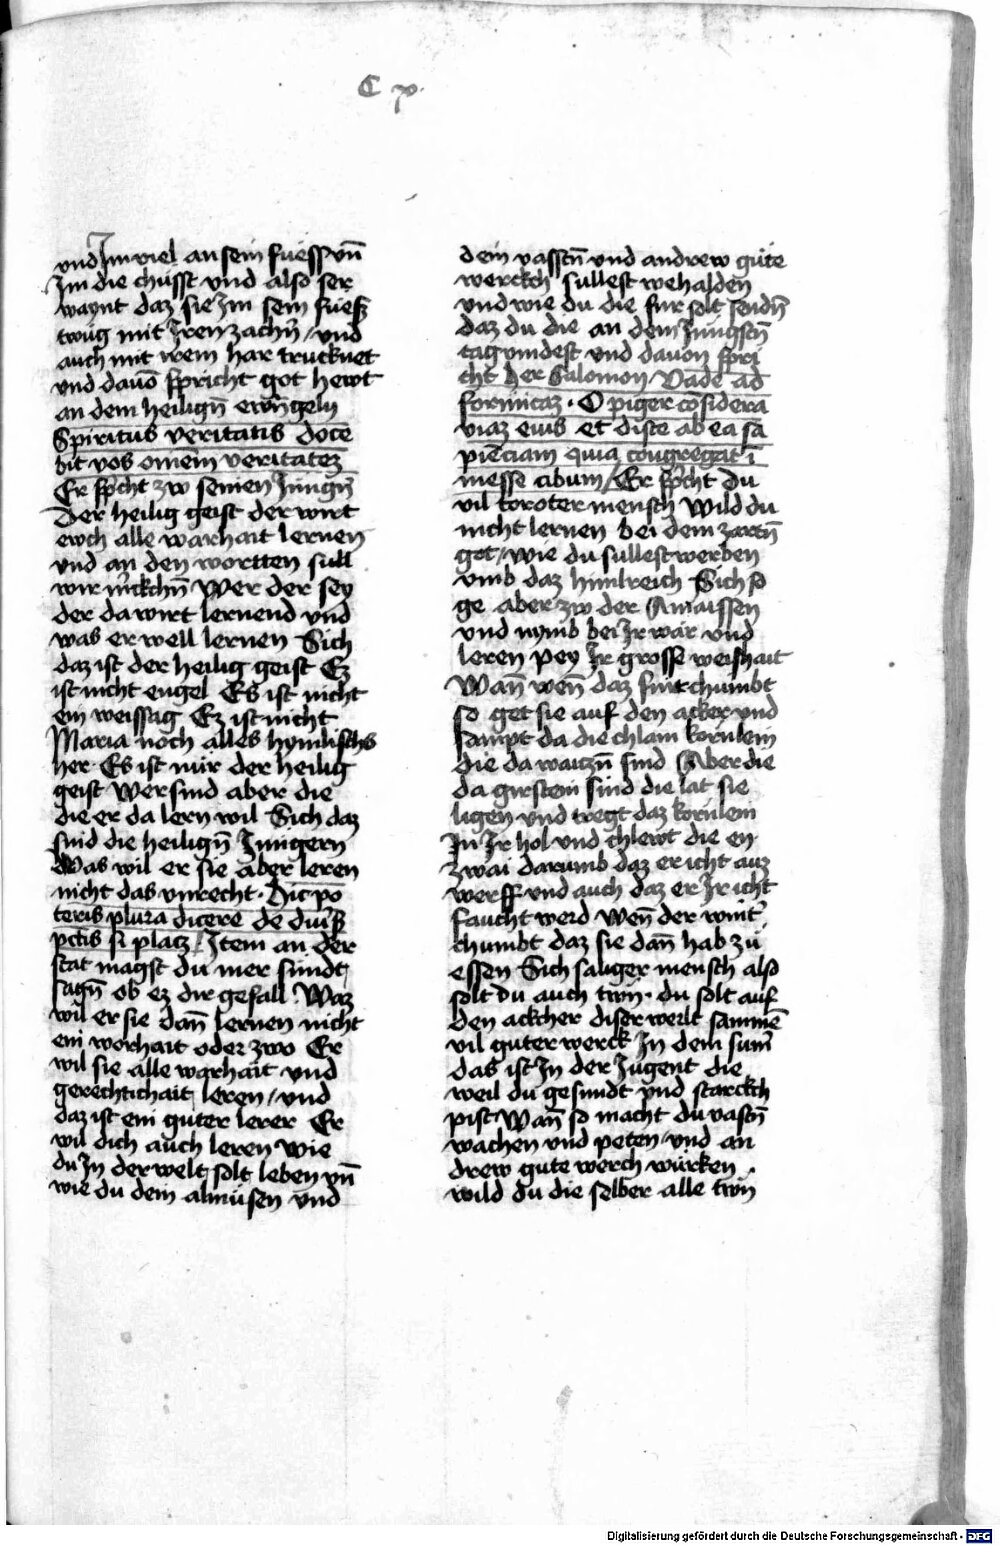 C x
vnd Im viel an sein fuess vn̄
Im die chüsst vnd also ser
waynt daz sie Im sein fuesz
twůg mit Iren zachn̄ / vnd
auch mit irem har trucknet
vnd dauō spricht got hewt
an dem heilign̄ ewn̄gely
Spiritus veritatis doce
bit vos omēm veritatez
Er sp̄cht zw seinen Jungn̄
Der heilig geist der wirt
ewch alle warhait lernen
vnd an den wortten süll
wir m̄ckchn̄ Wer der sey
der da wirt lernend vnd
was er well lernen Sich
daz ist der heilig geist Ez
ist nicht engel Es ist nicht
ein weissag Ez ist nicht
Maria noch alles hymlischs
her · Es ist nür der heilig
geist Wer sind aber die
die er da lern wil Sich daz
sind die heilign̄ Jungern
Was wil er sie aber leren
nicht das vnrecht · Hic po
teris plura dicere de diu̅sz
pctis si placz / Item an der
stat magst du mer sündt
sagn̄ ob ez dir gefall · Waz
wil er sie dan̄ lernen nicht
ein worhait oder zwo Er
wil sie alle warhait vnd
gerechtichait leren / vnd
daz ist ein guter lerer Er
wil dich auch leren wie
du In der welt solt leben vn̄
wie du dein almüsen vnd
dein vasstn̄ vnd andrew güte
werckch süllest wehalden
vnd wie du die für solt sendn̄
daz du die an dem Jüngstn̄
tag vindest vnd dauon spri
cht her Salomon Vade ad
formicaz · O piger considera
viaz eius et disce ab ea sa
piēciam quia congregat ī
messe cibum / Er sp̄cht du
vil toroter mensch Wild du
nicht lernen bei dem zartn̄
got / wie du süllest werben
vmb daz himlreich Sich so
ge aber zw der Amaissen
vnd nymb bei Ir war vnd
leren pey Ir grosse weishait
Wan̄ wen̄ daz snit chumbt
so get sie auf den acker vnd
sampt da die chlain körnlein
die da waitzn̄ sind Aber die
da girstein sind die lat sie
ligen vnd tregt daz körnlein
In Ir hol vnd chlewt die en
zwai darumb daz er icht auz
werff vnd auch daz er Ir icht
faucht werd Wen̄ der wint̄
chumbt daz sie dan̄ hab zü
essen Sich saliger mensch also
solt du auch twn · du solt auf
den ackcher diser werlt sammē
vil guter werck In dem sum̄
das ist In der Jugent die
weil du gesundt vnd starckch
pist Wan̄ so macht du vastn̄
wachen vnd peten / vnd an
drew gute werch würken
wild du die selber alle twn
Digitalisierung gefördert durch die Deutsche Forschungsgemeinschaft - DFG